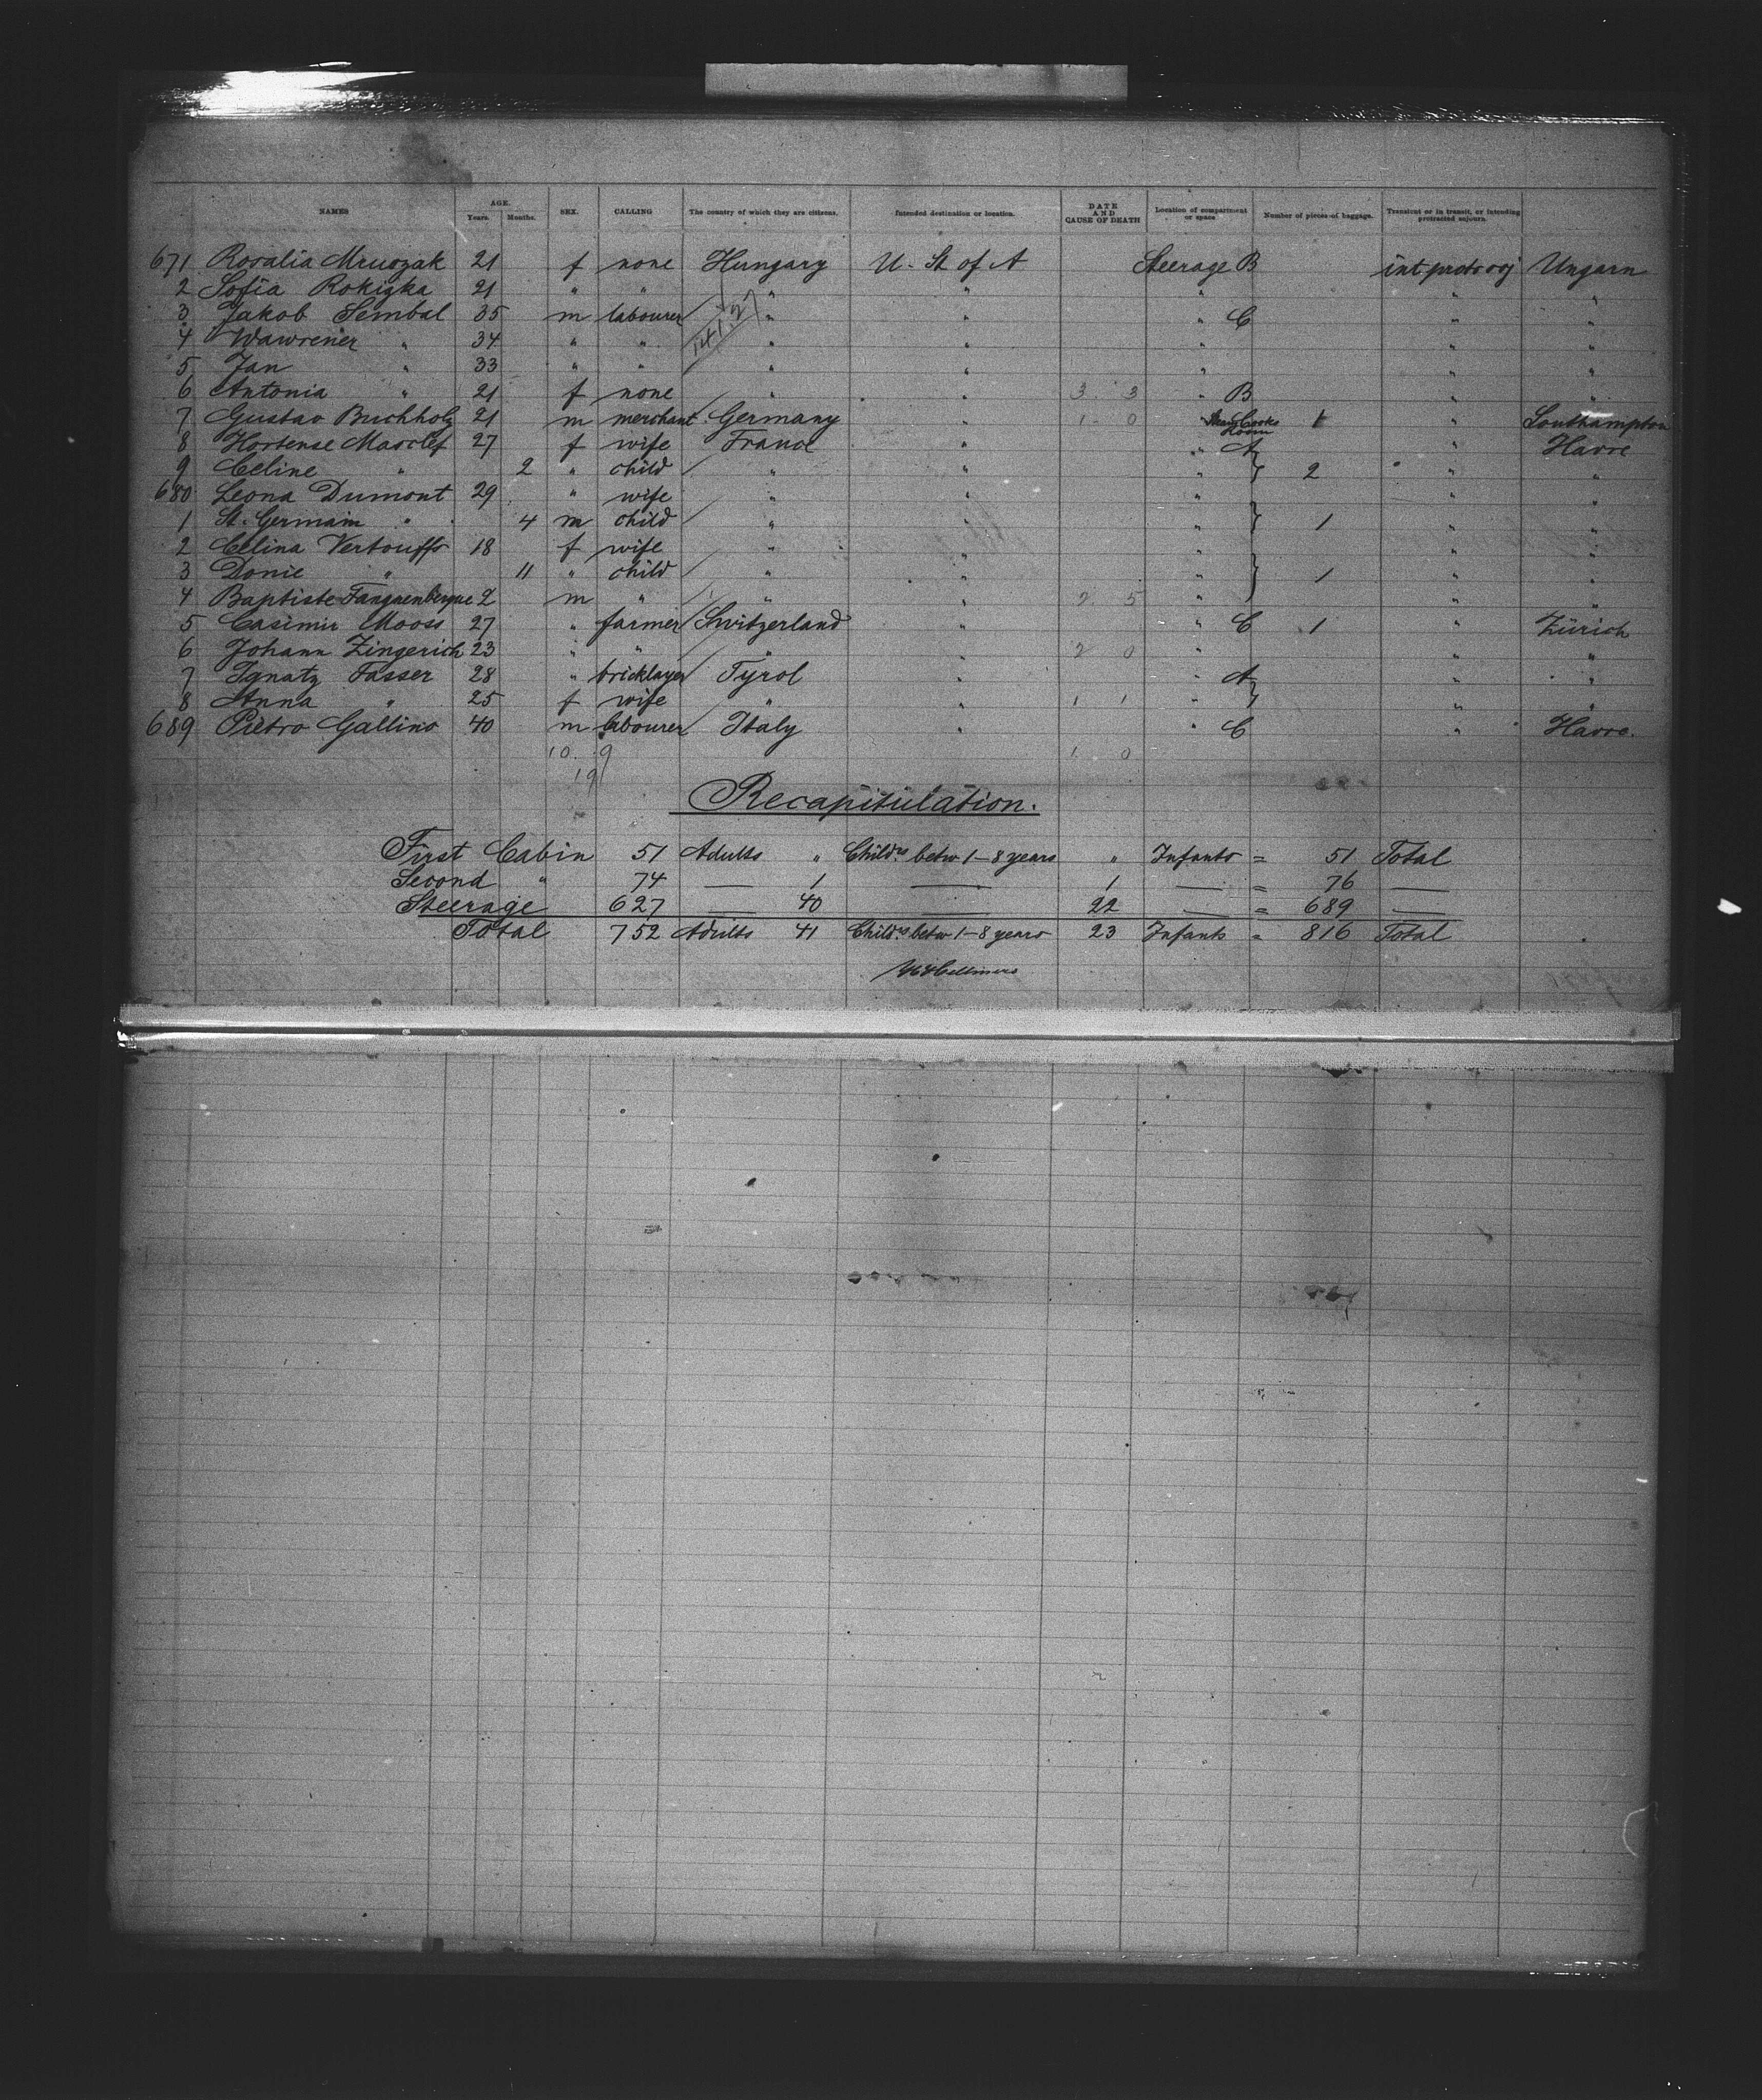 NAMES AGE. Years. Months. SEX. CALLING The country of which they are citizens. Intended destination or location. DATE AND CAUSE OF DEATH Location of compartment or space Number of pieces of baggage. Transient or in transit, or intending protracted sojourn.
671 Rosalia Mruozak 21 f none Hungary U. St of A Steerage B int protr soj Ungarn
2 Sofia Rokizka 21 " " " " " " "
3 Jakob Sembal 35 m labourer " " " C " "
4 Wawrener " 34 " " " " " " "
5 Jan " 33 " " " " " " "
6 Antonia " 21 f none " " 3 3 " B " "
7 Gustav Buchholz 21 m merchant Germany " 1 0 Cooks Room 1 " Southampton
8 Hortense Masclef 27 f wife France " " A " Havre
9 Celine " 2 " child " " " 2 " "
680 Leona Dumont 29 " wife " " " " "
1 St. Germain " 4 m child " " " 1 " "
2 Celina Vertouffs 18 f wife " " " " "
3 Donie " 11 " child " " " 1 " "
4 Baptiste Fanquenbergue 2 m " " " 2 5 " " "
5 Casimir Mooss 27 " farmer Switzerland " " C 1 " Zürich
6 Johann Zingerich 23 " " " " 2 0 " " "
7 Ignatz Fasser 28 " bricklayer Tyrol " " A " "
8 Anna " 25 f wife " " 1 1 " " "
689 Pietro Gallino 40 m labourer Italy " " C " Havre.
10. 9 1 0
19
Recapitulation.
First Cabin 51 Adults " Childrs betw 1-8 years " Infants = 51 Total
Second " 74 — 1 — 1 — = 76 —
Steerage 627 — 40 — 22 — = 689 —
Total 752 Adults 41 Childrs betw 1-8 years 23 Infants = 816 Total